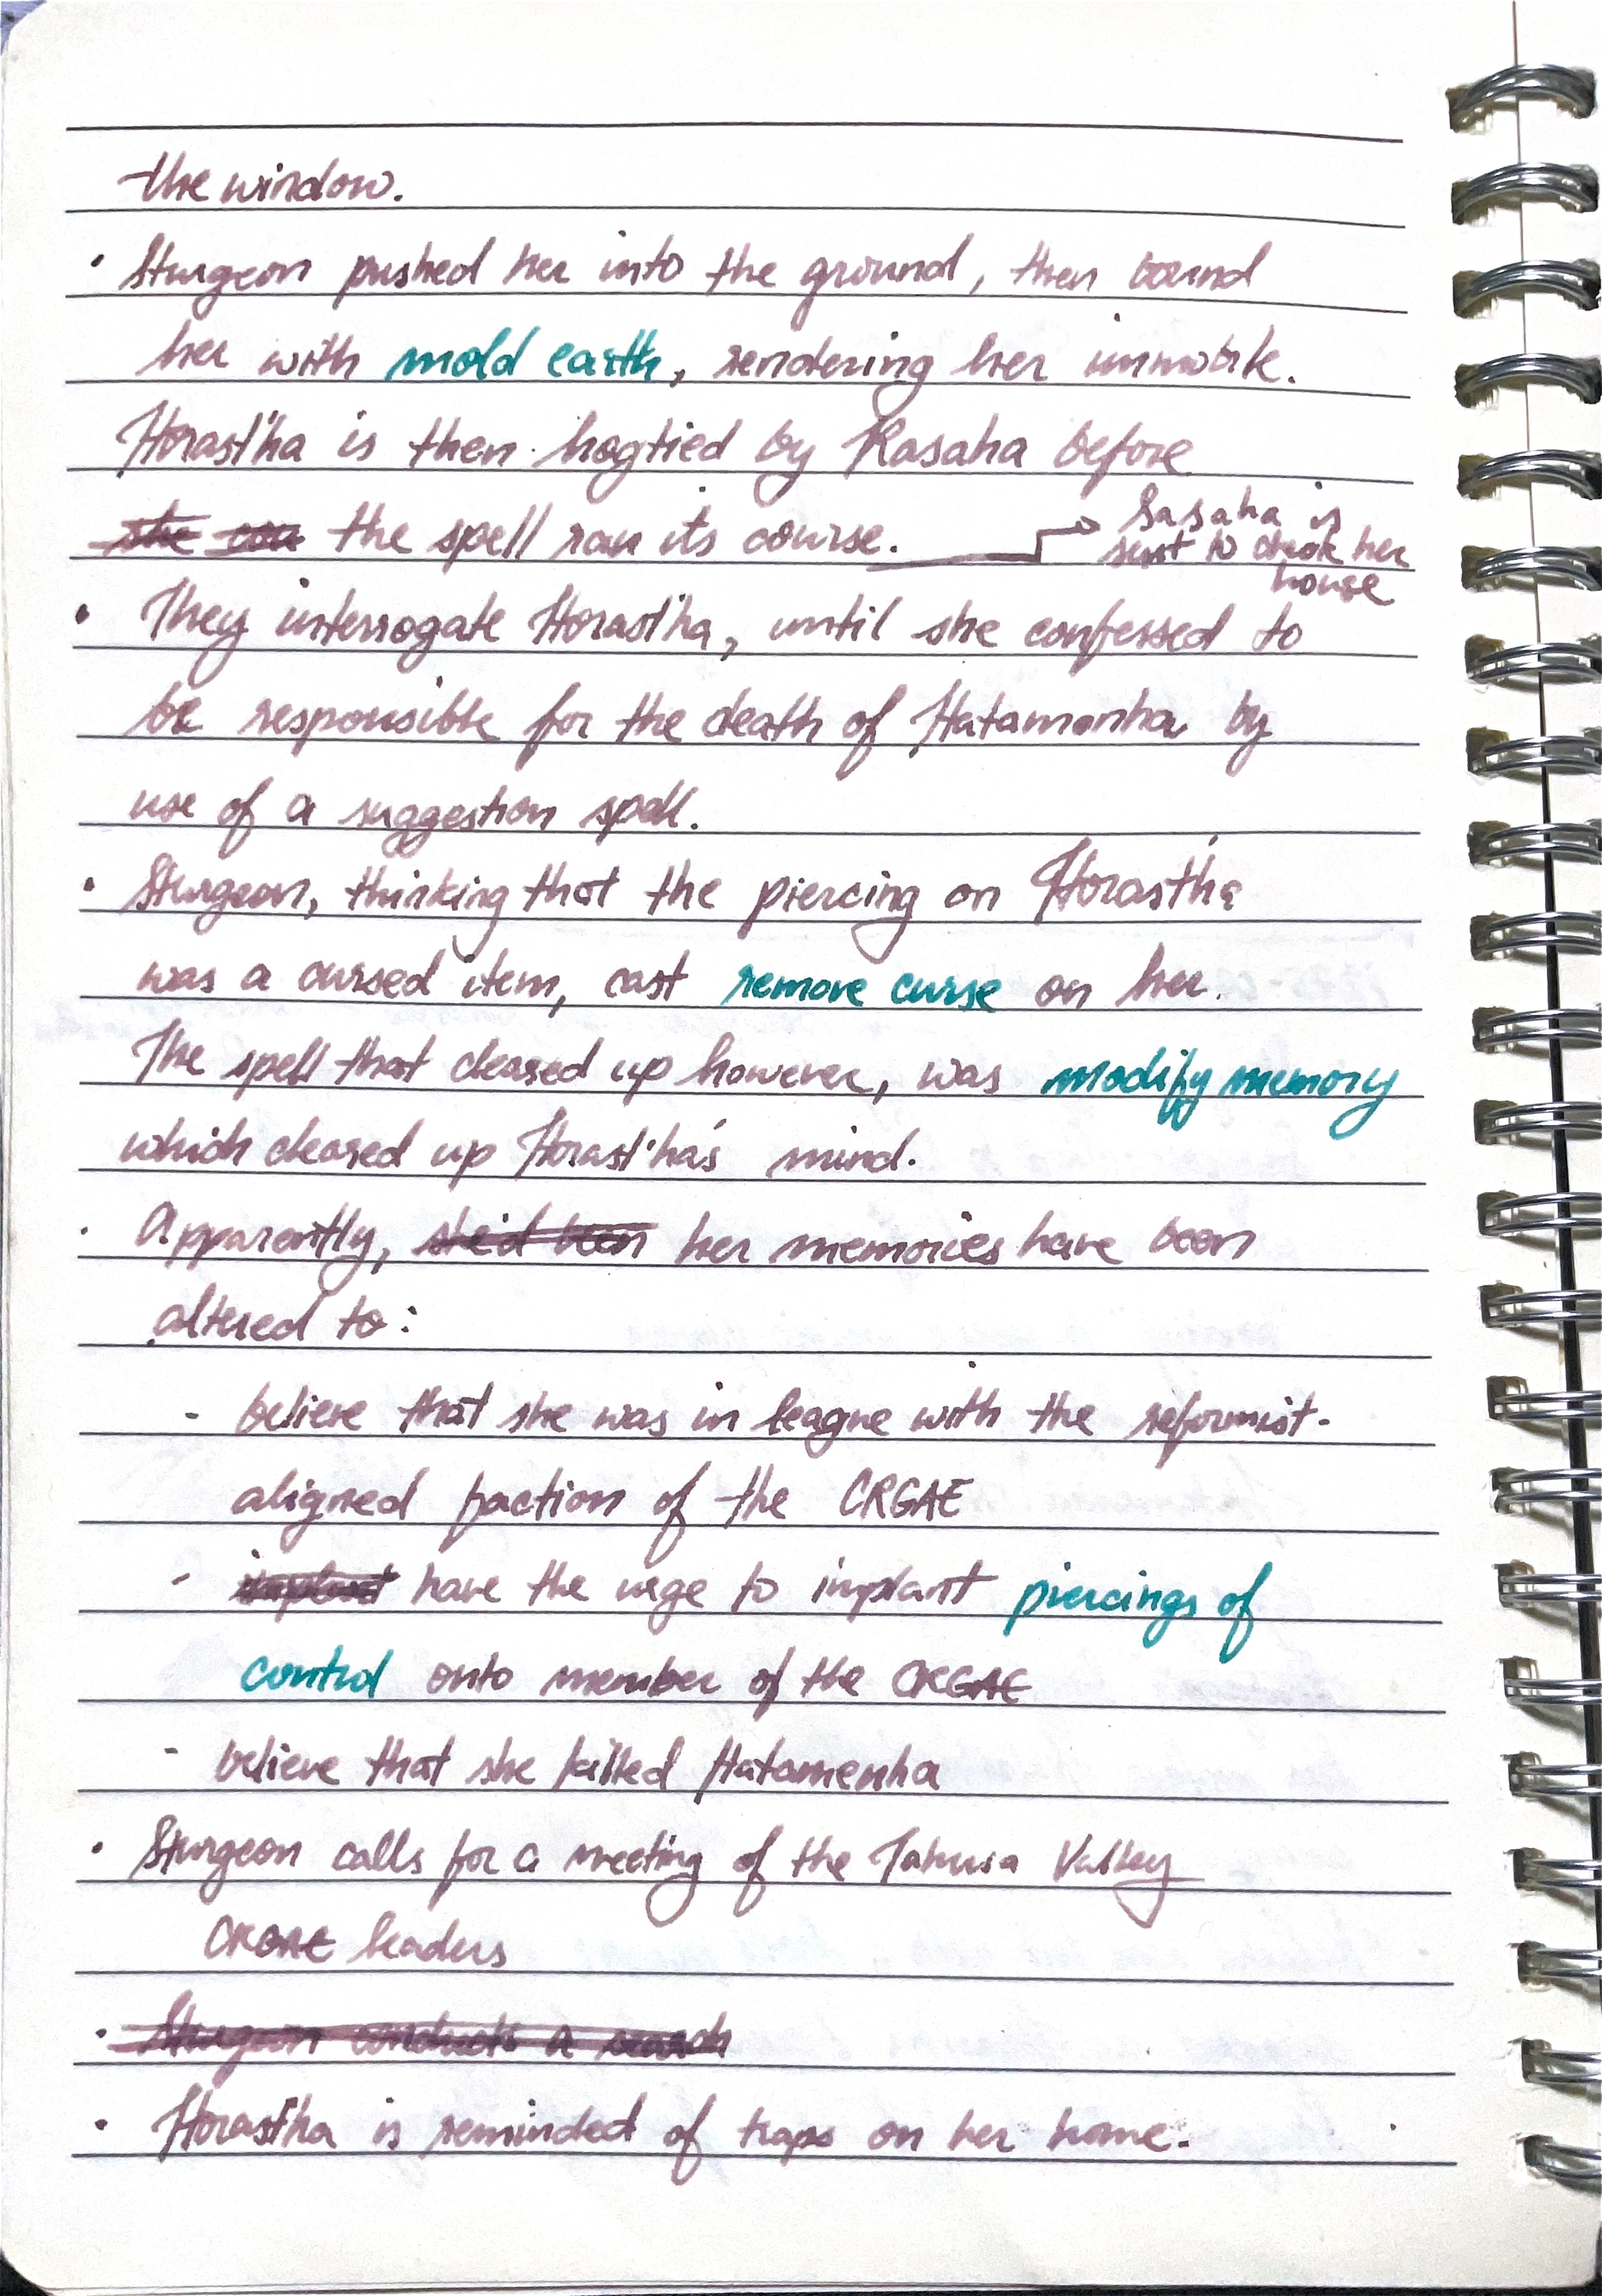 the window.
• Sturgeon pushed her into the ground, then bound
her with mold earth, rendering her immobile.
Horast'ha is then hogtied by Rasaha before
she cou the spell ran its course. → Sasaha is
sent to check her
house
• They interrogate Horast'ha, until she confessed to
be responsible for the death of Hatamenha by
use of a suggestion spell.
• Sturgeon, thinking that the piercing on Horast'ha
was a cursed item, cast remove curse on her.
The spell that cleared up however, was modify memory
which cleared up Horast'ha's mind.
• Apparently, she'd been her memories have been
altered to:
- believe that she was in league with the reformist-
aligned faction of the CRGAE
- implant have the urge to implant piercings of
control onto member of the CRGAE
- believe that she killed Hatamenha
• Sturgeon calls for a meeting of the Tahusa Valley
CRGAE leaders
• Sturgeon conducts a search
• Horast'ha is reminded of traps on her home.